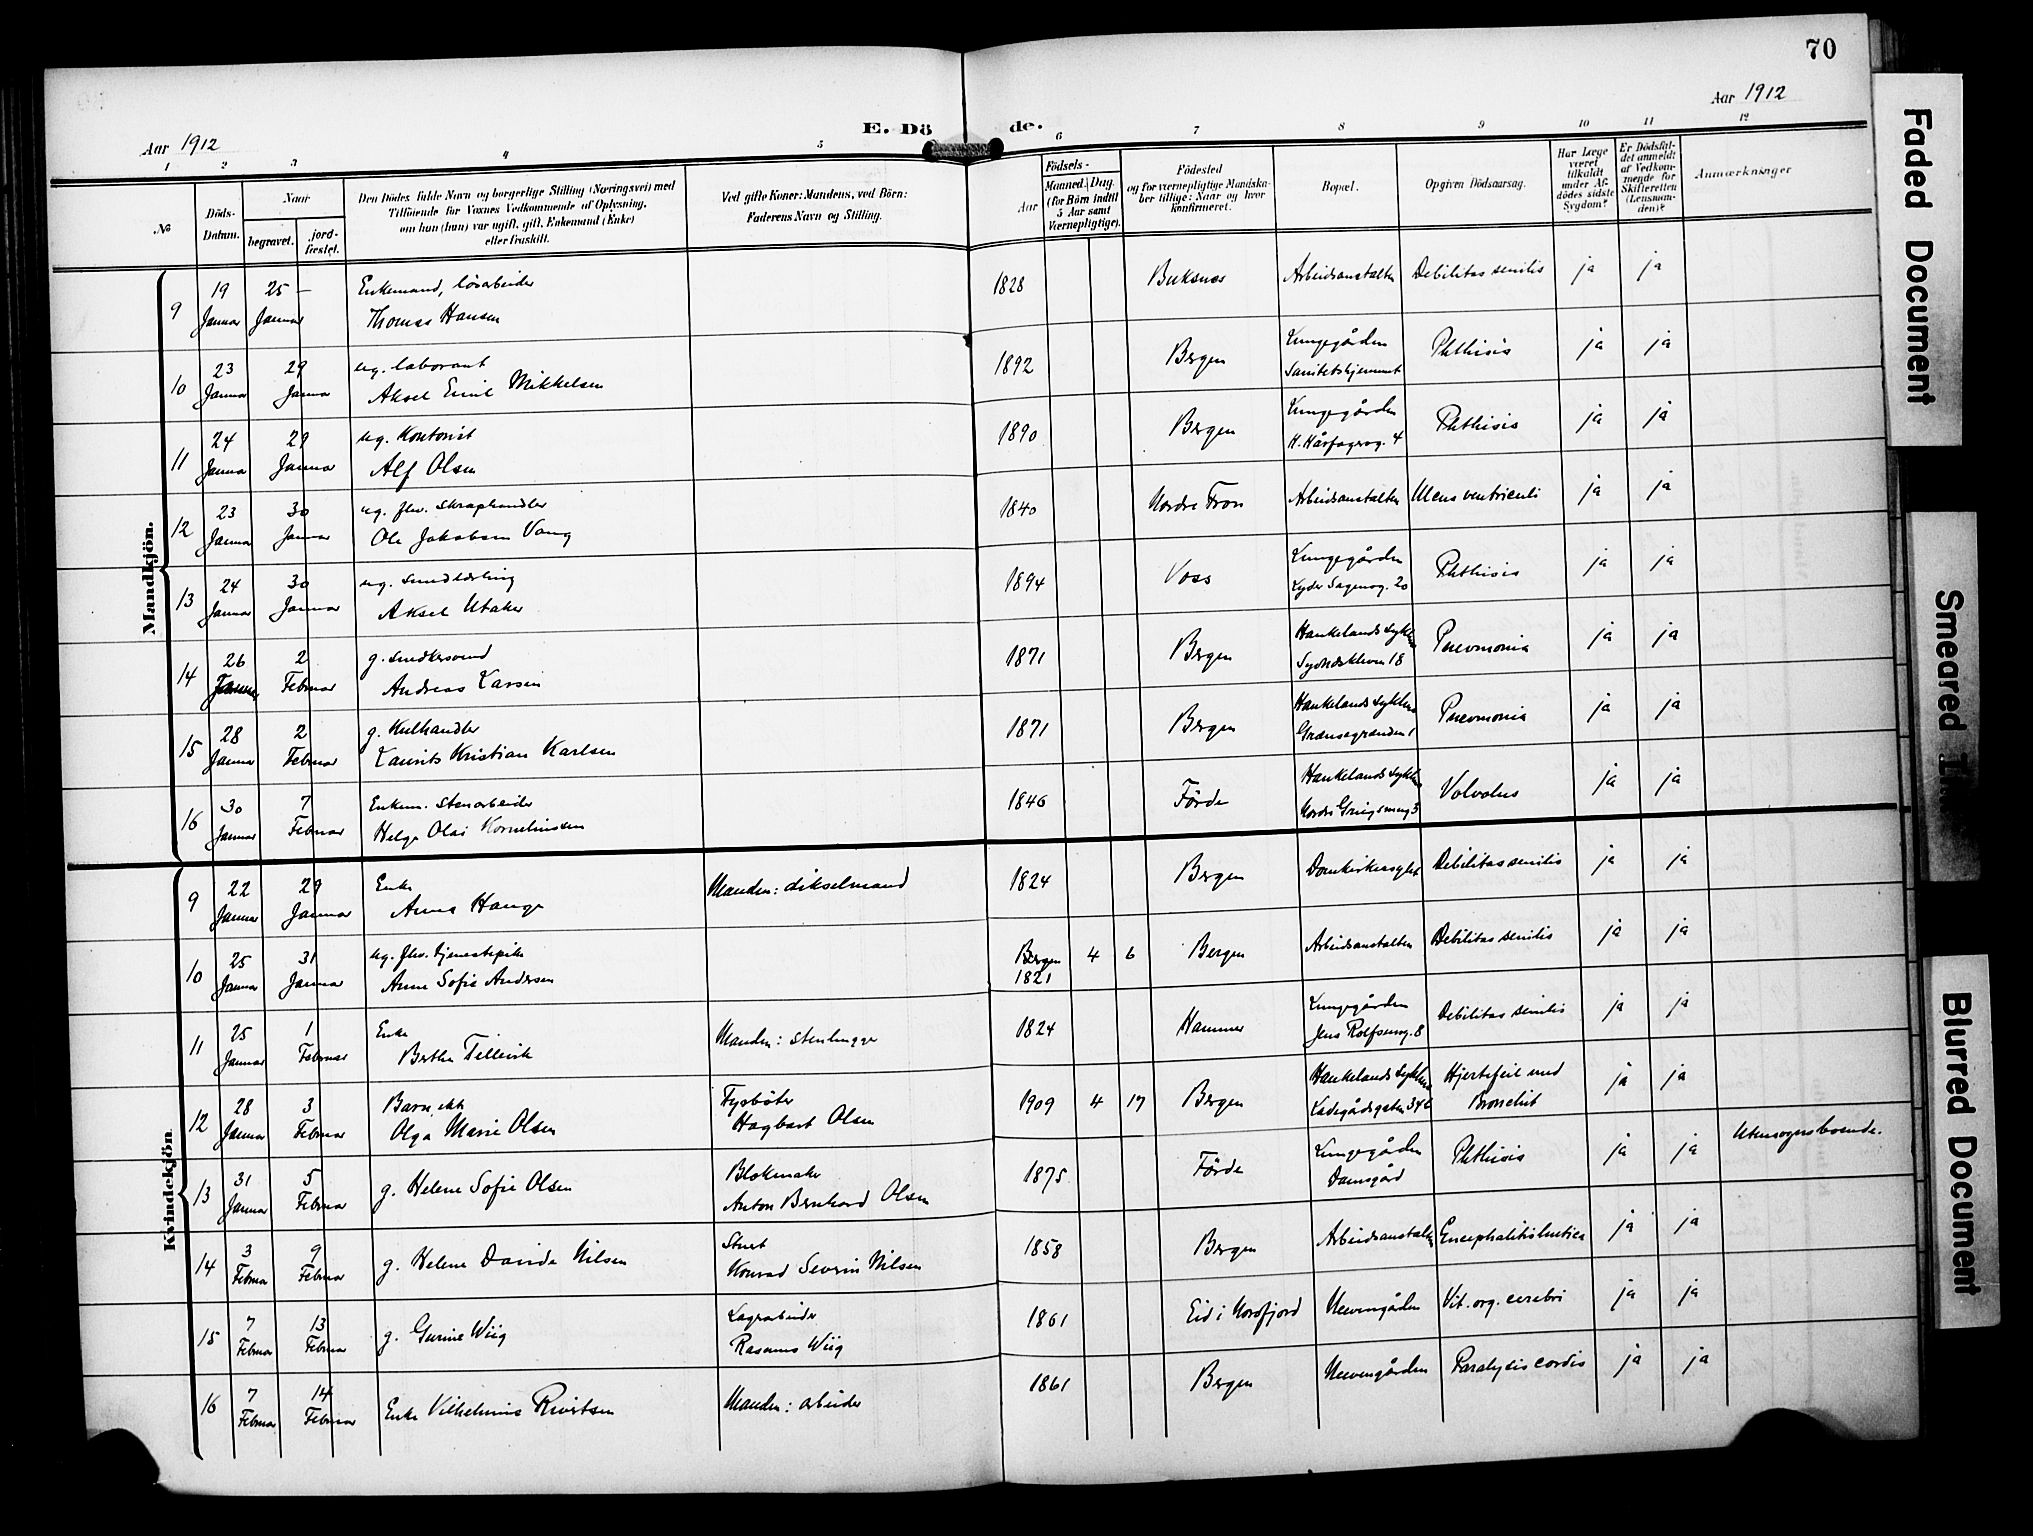 70
Aar 1912
Aar 1912
E. Dö de.
1 2 3 4 5 6 7 8 9 10 11 12
№
Döds-Datum.
Naar
begravet.
jord-fæstet.
Den Dödes fulde Navn og borgerlige Stilling (Næringsvei) med
Tilföiende for Voxnes Vedkommende af Oplysning,
om han (hun) var ugift, gift, Enkemand (Enke)
eller fraskilt.
Ved gifte Koner: Mandens, ved Börn:
Faderens Navn og Stilling.
Aar
Födsels-
Maaned. Dag.
(for Börn indtil
5 Aar samt
Værnepligtige).
Födested
og for værnepligtige Mandska-
ber tillige: Naar og hvor
konfirmeret.
Bopæl.
Opgiven Dödsaarsag.
Har Læge
været
tilkaldt
under Af-
dödes sidste
Sygdom?
Er Dödsfal-
det anmeldt
af Vedkom-
mende for
Skifteretten
(Lensman-
den)?
Anmærkninger
Mandkjön.
9 19 Januar 25 Januar — Enkemand, løsarbeider Thomas Hansen 1828 Buksnes Arbeidsanstalten Debilitas senilis ja ja
10 23 Januar 29 Januar ug. laborant Aksel Emil Mikkelsen 1892 Bergen Lungegården Sanitetshjemmet Phthisis ja ja
11 24 Januar 29 Januar ug. Kontorist Alf Olsen 1890 Bergen Lungegården H. Hårfagresg. 4 Phthisis ja ja
12 23 Januar 30 Januar ug. fhv. skraphandler Ole Jakobsen Vang 1840 Nordre Fron Arbeidsanstalten Ulcus ventriculi ja ja
13 24 Januar 30 Januar ug. smedlærling Aksel Utaker 1894 Voss Lungegården Lyder Sagensg. 20 Phthisis ja ja
14 26 Januar 2 Februar g. snedkersvend Andreas Larsen 1871 Bergen Haukelands sykehus 18 Pneumonia ja ja
15 28 Januar 2 Februar g. Kulhandler Laurits Kristian Karlsen 1871 Bergen Haukelands sykehus 1 Pneumonia ja ja
16 30 Januar 7 Februar Enkem. stenarbeider Helge Olai Korneliussen 1846 Förde Haukelands sykehus Nordre 3 Volvolus ja ja
Kvindekjön
9 22 Januar 29 Januar Enke Anna Hauge Manden: dikselmand 1824 Bergen Domkirkeasylet Debilitas senilis ja ja
10 25 Januar 31 Januar ug. fhv. tjenestepike Anne Sofie Andersen Bergen 1821 4 6 Bergen Arbeidsanstalten Debilitas senilis ja ja
11 25 Januar 1 Februar Enke Berthe Tellevik Manden: stenhugger 1824 Hammer Lungegården Jens Rolfsensg. 8 Debilitas senilis ja ja
12 28 Januar 3 Februar Barn, ekte Olga Marie Olsen Fyrbøter Hagbart Olsen 1909 4 17 Bergen Haukelands sykehus Ladegårdsgaten 34b Hjertefeil med Bronchit ja ja
13 31 Januar 5 Februar g. Helene Sofie Olsen Blokmaker Anton Bernhard Olsen 1875 Förde Lungegården Damsgård Phthisis ja ja Utensognsboende.
14 3 Februar 9 Februar g. Helene Davida Nilsen Stuert Konrad Severin Nilsen 1858 Bergen Arbeidsanstalten Encephalitis luetica ja ja
15 7 Februar 13 Februar g. Gurine Wiig Lagerarbeider Rasmus Wiig 1861 Eid i Nordfjord Neevengården Vit. org. cerebri ja ja
16 7 Februar 14 Februar Enke Vilhelmine Rivertsen Manden: arbeider 1861 Bergen Neevengården Paralysis cordis ja ja
Faded Document
Smeared
Blurred Document